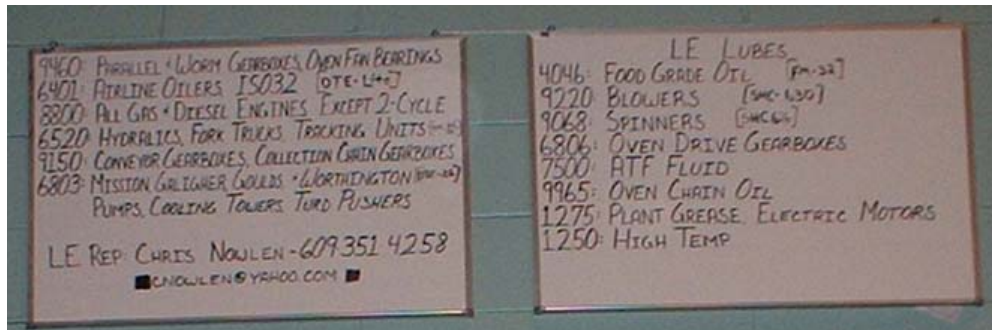 9460: PARALLEL & WORM GEARBOXES, OVEN FAN BEARINGS
6401: AIRLINE OILERS, ISO32 [DTE-Lite]
8800: ALL GAS & DIESEL ENGINES, EXCEPT 2-CYCLE
6520: HYDRALICS, FORK TRUCKS, TRACKING UNITS
9150: CONVEYOR GEARBOXES, COLLECTION CHAIN GEARBOXES
6803: MISSION, GALIGHER, GOULDS, & WORTHINGTON
PUMPS, COOLING TOWERS, TURD PUSHERS
LE REP: CHRIS NOWLEN - 609 351 4258
CNOWLEN@YAHOO.COM
LE LUBES
4046: FOOD GRADE OIL [FM-32]
9220: BLOWERS [SHC-630]
9068: SPINNERS
6806: OVEN DRIVE GEARBOXES
7500: ATF FLUID
9965: OVEN CHAIN OIL
1275: PLANT GREASE, ELECTRIC MOTORS
1250: HIGH TEMP